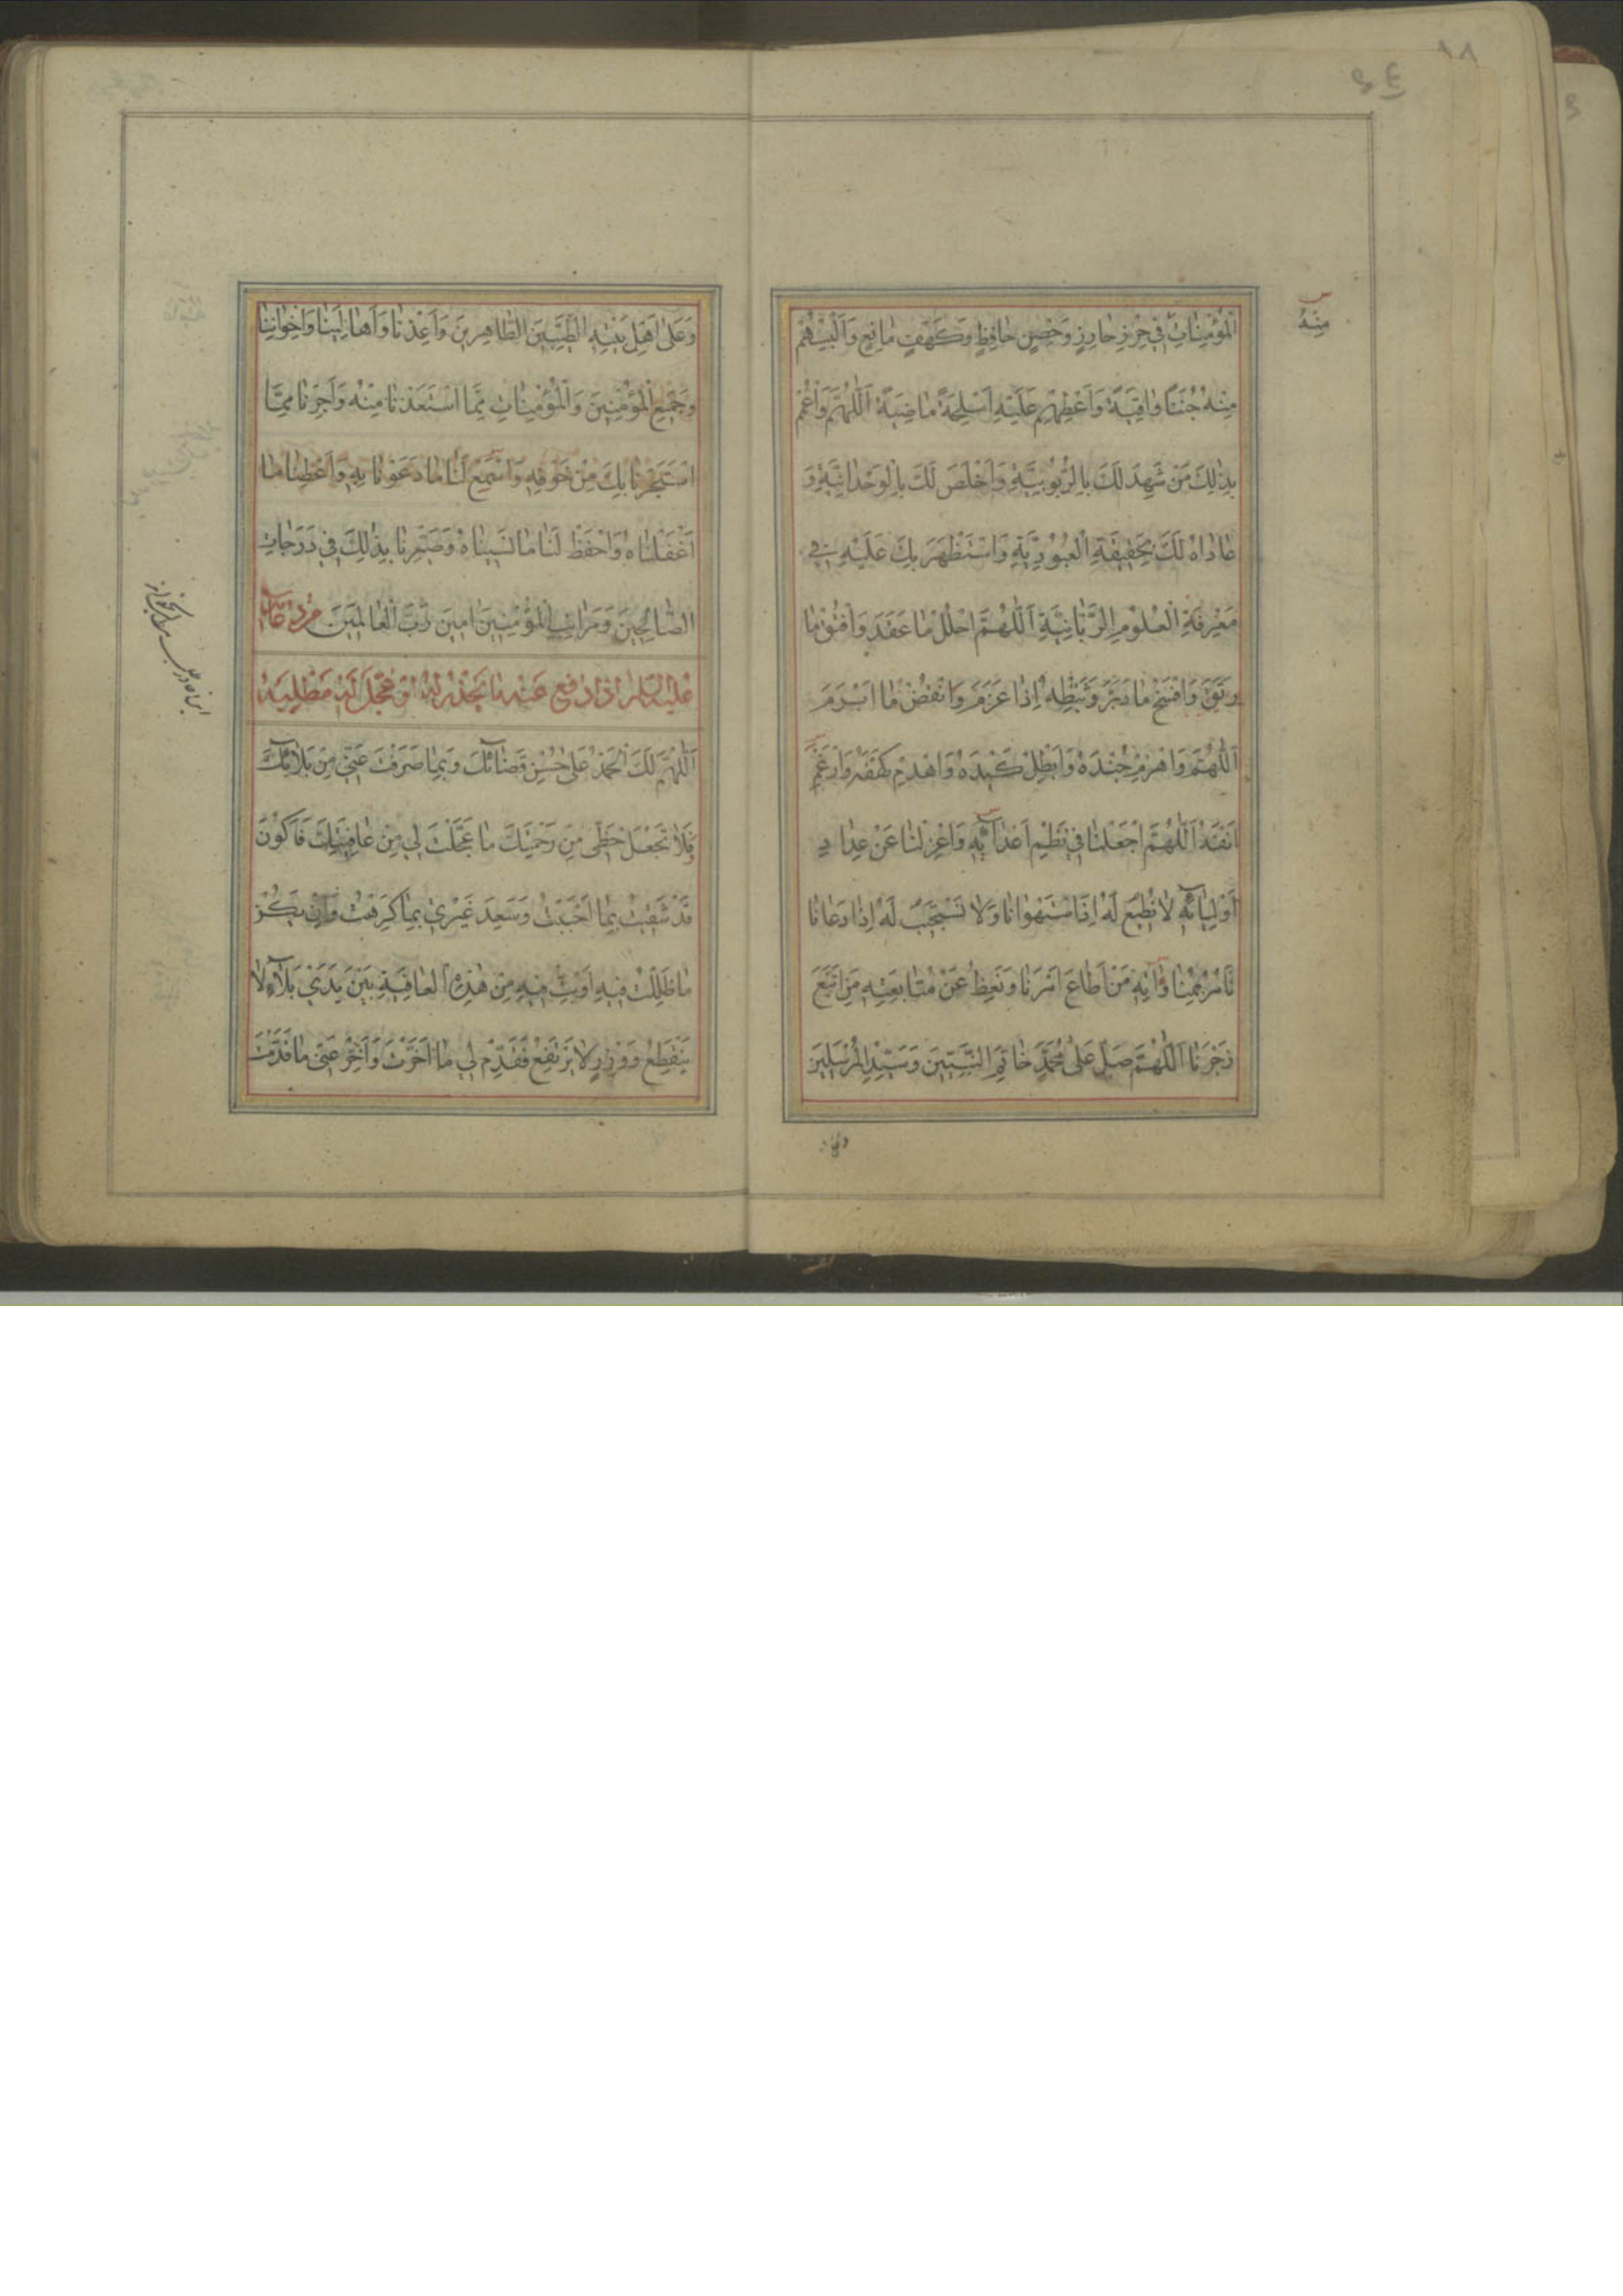 الْمُؤْمِنَاتِ فِي حِرْزٍ حَارِزٍ وَحِصْنٍ حَافِظٍ وَكَهْفٍ مَانِعٍ وَأَلْبِسْهُمْ
مِنْهُ جُنَنًا وَاقِيَةً وَأَعْطِهِمْ عَلَيْهِ أَسْلِحَةً مَاضِيَةً اَللّٰهُمَّ وَاعْمُمْ
بِذٰلِكَ مَنْ شَهِدَ لَكَ بِالرُّبُوبِيَّةِ وَأَخْلَصَ لَكَ بِالْوَحْدَانِيَّةِ وَ
عَادَاهُ لَكَ بِحَقِيقَةِ الْعُبُودِيَّةِ وَاسْتَظْهَرَ بِكَ عَلَيْهِ فِي
مَعْرِفَةِ الْعُلُومِ الرَّبَّانِيَّةِ اَللّٰهُمَّ احْلُلْ مَا عَقَدَ وَافْتُقْ مَا
رَتَقَ وَافْسَخْ مَا دَبَّرَ وَثَبِّطْهُ إِذَا عَزَمَ وَانْقُضْ مَا أَبْرَمَ
اَللّٰهُمَّ وَاهْزِمْ جُنْدَهُ وَأَبْطِلْ كَيْدَهُ وَاهْدِمْ كَهْفَهُ وَأَرْغِمْ
أَنْفَهُ اَللّٰهُمَّ اجْعَلْنَا فِي نَظْمِ أَعْدَائِهِ وَاعْزِلْنَا عَنْ عِدَادِ
أَوْلِيَائِهِ لَا نُطِيعُ لَهُ إِذَا اسْتَهْوَانَا وَلَا نَسْتَجِيبُ لَهُ إِذَا دَعَانَا
نَأْمُرُ بِمُنَاوَاتِهِ مَنْ أَطَاعَ أَمْرَنَا وَنَعِظُ عَنْ مُتَابَعَتِهِ مَنِ اتَّبَعَ
زَجْرَنَا اَللّٰهُمَّ صَلِّ عَلَى مُحَمَّدٍ خَاتَمِ النَّبِيِّينَ وَسَيِّدِ الْمُرْسَلِينَ
مِنْهُ
وَعَلَى أَهْلِ بَيْتِهِ الطَّيِّبِينَ الطَّاهِرِينَ وَأَعِذْنَا وَأَهَالِيَنَا وَإِخْوَانَنَا
وَجَمِيعَ الْمُؤْمِنِينَ وَالْمُؤْمِنَاتِ مِمَّا اسْتَعَذْنَا مِنْهُ وَأَجِرْنَا مِمَّا
اسْتَجَرْنَا بِكَ مِنْ خَوْفِهِ وَاسْمَعْ لَنَا مَا دَعَوْنَا بِهِ وَأَعْطِنَا مَا
أَغْفَلْنَاهُ وَاحْفَظْ لَنَا مَا نَسِينَاهُ وَصَيِّرْنَا بِذٰلِكَ فِي دَرَجَاتِ
الصَّالِحِينَ وَمَرَاتِبِ الْمُؤْمِنِينَ آمِينَ رَبَّ الْعَالَمِينَ
عَلَيْهِ السَّلَامُ إِذَا دُفِعَ عَنْهُ مَا يَحْذَرُهُ أَوْ عُجِّلَ لَهُ مَطْلَبُهُ
اَللّٰهُمَّ لَكَ الْحَمْدُ عَلَى حُسْنِ قَضَائِكَ وَبِمَا صَرَفْتَ عَنِّي مِنْ بَلَائِكَ
فَلَا تَجْعَلْ حَظِّي مِنْ رَحْمَتِكَ مَا عَجَّلْتَ لِي مِنْ عَافِيَتِكَ فَأَكُونَ
قَدْ شَقِيتُ بِمَا أَحْبَبْتُ وَسَعِدَ غَيْرِي بِمَا كَرِهْتُ وَإِنْ يَكُنْ
مَا ظَلِلْتُ فِيهِ أَوْ بِتُّ فِيهِ مِنْ هٰذِهِ الْعَافِيَةِ بَيْنَ يَدَيْ بَلَاءٍ لَا
يَنْقَطِعُ وَوِزْرٍ لَا يَرْتَفِعُ فَقَدِّمْ لِي مَا أَخَّرْتَ وَأَخِّرْ عَنِّي مَا قَدَّمْتَ